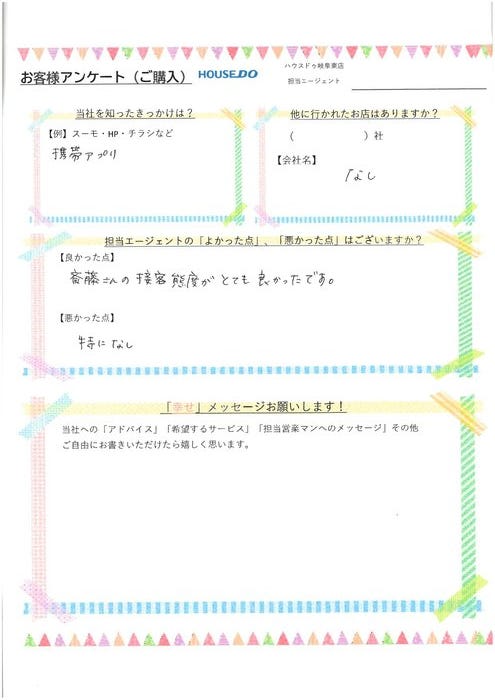 ハウスドゥ岐阜東店
お客様アンケート（ご購入） HOUSEDO
担当エージェント
当社を知ったきっかけは？
【例】スーモ・HP・チラシなど
携帯アプリ
他に行かれたお店はありますか？
（　　　　　　　）社
【会社名】
なし
担当エージェントの「よかった点」、「悪かった点」はございますか？
【良かった点】
斎藤さんの接客態度がとても良かったです。
【悪かった点】
特になし
「幸せ」メッセージお願いします！
当社への「アドバイス」「希望するサービス」「担当営業マンへのメッセージ」その他
ご自由にお書きいただけたら嬉しく思います。